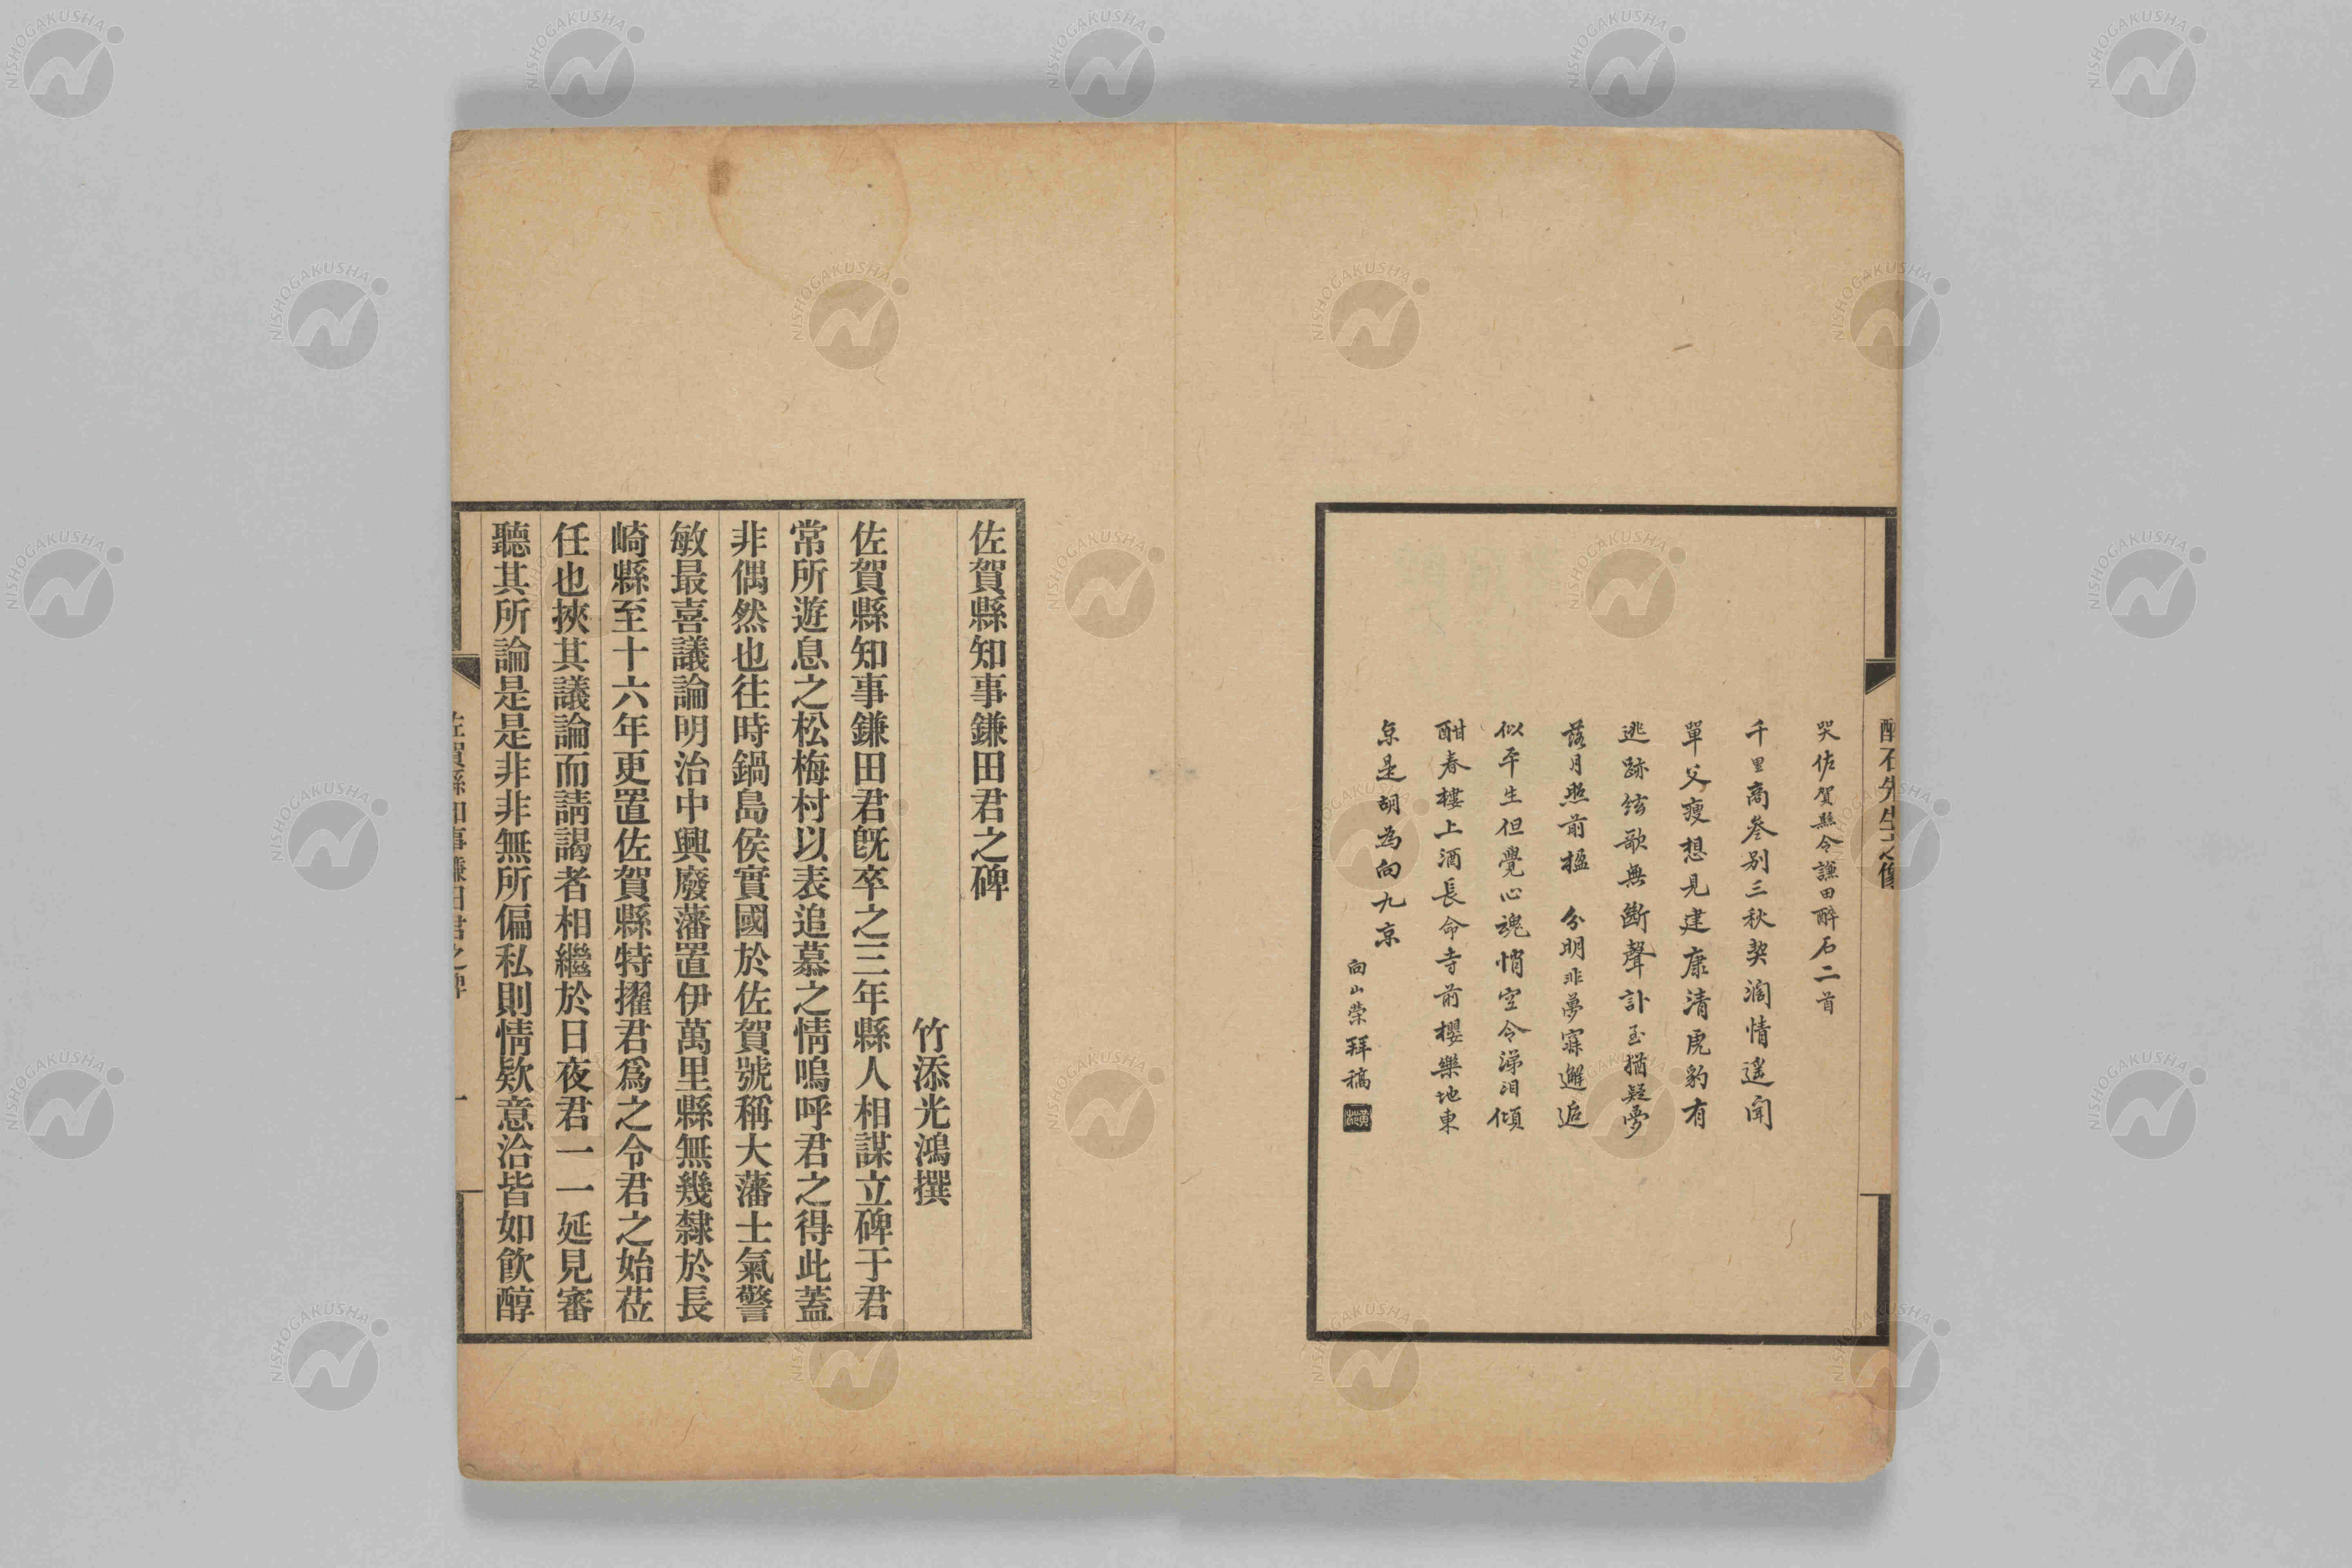 醉石先生之像
哭佐賀縣令謙田醉石二首
千里商叁別三秋契濶情遥聞
單父瘦想見建康清虎豹有
逃跡絃歌無斷聲訃至猶疑夢
落月照前楹 分明非夢寐邂逅
似平生但覺心魂悄空令涕泪傾
酣春樓上酒長命寺前櫻樂地東
京是胡為向九京
向山榮拜稿
佐賀縣知事鎌田君之碑
竹添光鴻撰
佐賀縣知事鎌田君旣卒之三年縣人相謀立碑于君
常所遊息之松梅村以表追慕之情嗚呼君之得此蓋
非偶然也往時鍋島侯實國於佐賀號稱大藩士氣警
敏最喜議論明治中興廢藩置伊萬里縣無幾隸於長
崎縣至十六年更置佐賀縣特擢君爲之令君之始莅
任也挾其議論而請謁者相繼於日夜君一一延見審
聽其所論是是非非無所偏私則情欵意洽皆如飮醇
佐賀縣知事鎌田君之碑
一
NISHOGAKUSHA